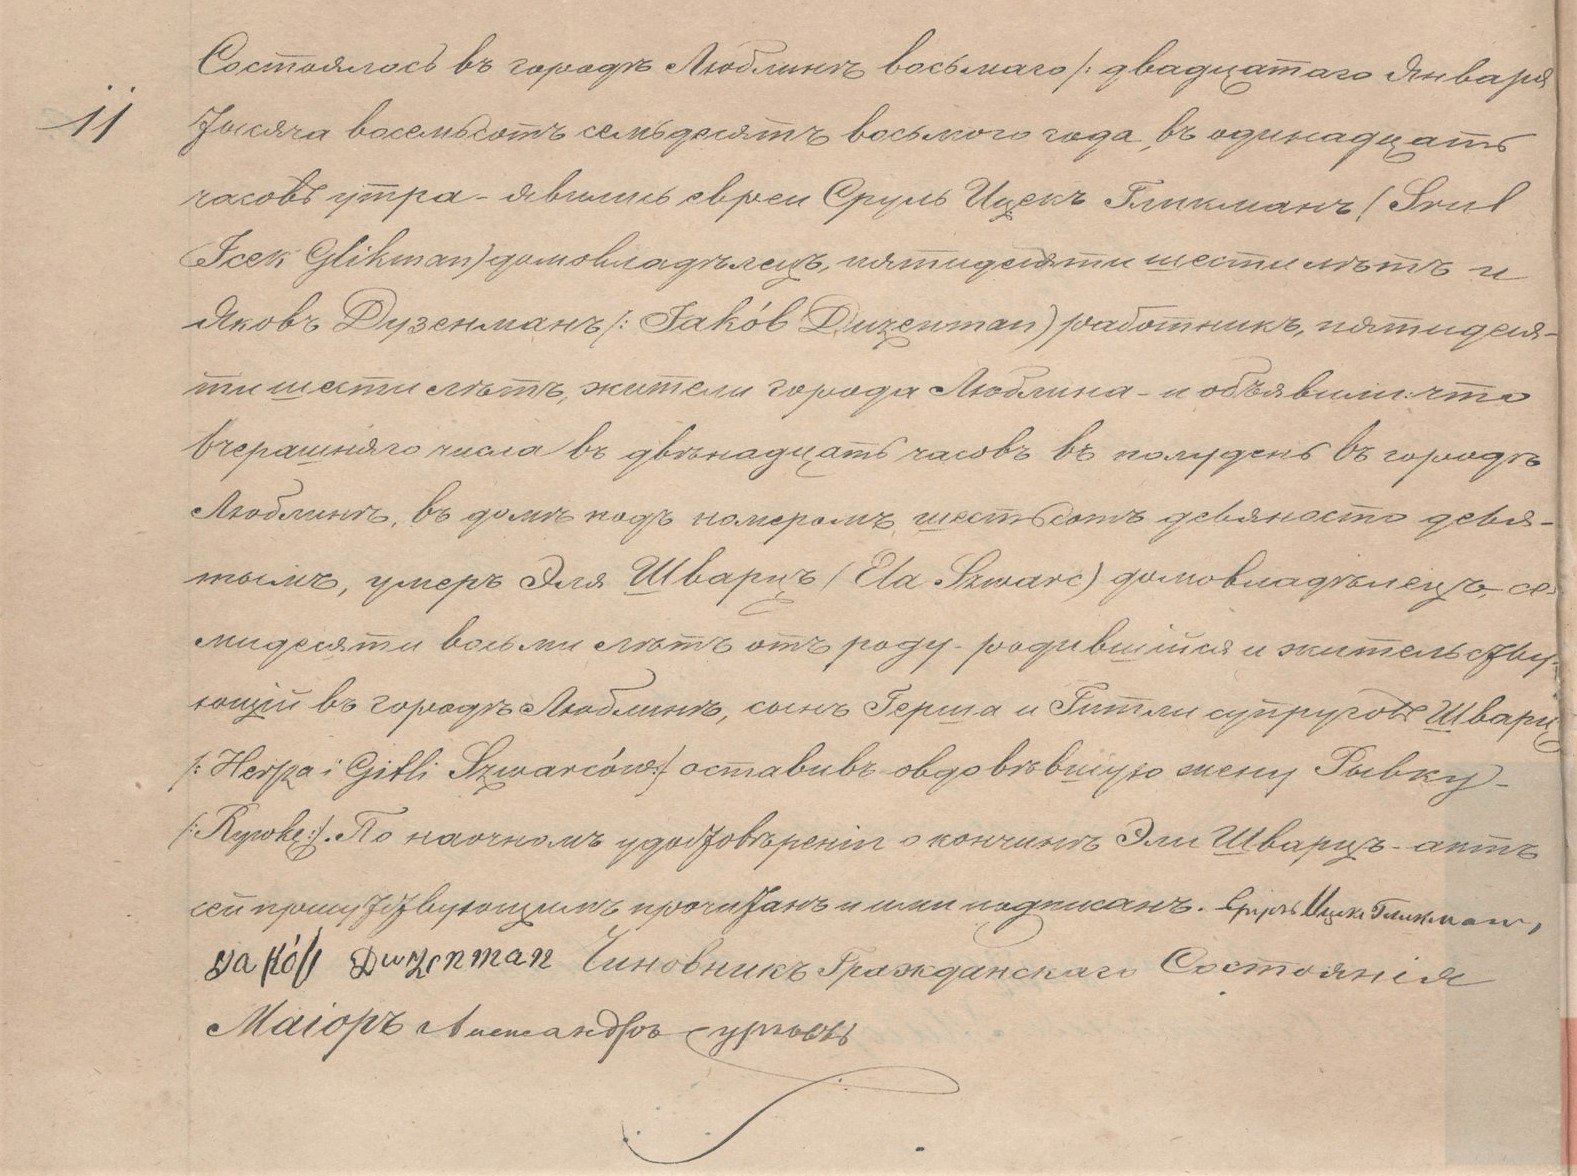 Состоялось въ городѣ Люблинѣ восьмаго /: двадцатаго Января
11
Тысяча восемьсотъ семьдесятъ восьмого года, въ одинадцать
часовъ утра - явились евреи Сруль Ицекъ Гликманъ / Srul
Icek Glikman) домовладѣлецъ, пятидесяти шести лѣтъ и
Яковъ Дузенманъ /: Jakób Duzenman) работникъ, пятидеся-
ти шести лѣтъ, жители города Люблина - и объявили: что
вчерашняго числа въ двѣнадцать часовъ въ полудень въ городѣ
Люблинѣ, въ домѣ подъ номеромъ шестьсотъ девяносто девя-
тымъ, умеръ Эля Шварцъ / Ela Szwarc) домовладѣлецъ, се-
мидесяти восьми лѣтъ отъ роду - родившійся и жительству-
ющій въ городѣ Люблинѣ, сынъ Герша и Гитли супруговъ Шварц
/: Herpa i Gitli Szwarców :/ оставивъ овдовѣвшую жену Рывку -
/: Rywkę :/. По наочномъ удостовѣреніи о кончинѣ Эли Шварцъ - актъ
сей присутствующимъ прочитанъ и ими подписанъ. Сруль Ицекъ Гликман,
Jakób Duzenman Чиновникъ Гражданскаго Состоянія
Маіоръ